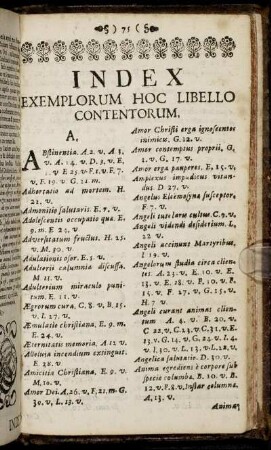 § ) 71 ( §
INDEX
EXEMPLORUM HOC LIBELLO
CONTENTORUM.
A.
ABstinentia. A. 2. v. A. 8.
v. A. 14. v. D. 5. v. E.
v. E. 25. v. F. 1. v. F. 7.
v. F. 19. v. G. 21. m.
Adhortatio ad mortem. H.
21. v.
Admonitio salutaris. E. 7. v.
Adolescentis occupatio qua. E.
9. m. E. 23. v
Adversitatum fructus. H. 25.
v. M. 19. v.
Adulationis osor. E. 1. v.
Adulterii calumnia discussa.
M. 11. v.
Adulterium miraculo puni-
tum. E. 11. v.
Ægrorum cura. C. 8. v. B. 15.
v. L. 27. v.
Æmulatio christiana. E. 9. m.
E. 24. v.
Æternitatis memoria. A. 12 v.
incendium extingvit.
E. 28. v.
Amicitia Christiana. E. 9. v.
M. 10. v.
Amor Dei. A. 26. v, F, 21. m. G.
30. v, L. 13. v.
Amor Christi erga ignoscentes
inimicis, G. 12. v.
Amor contemptus proprii, G,
1. v, G, 17. v.
Amor erga pauperes. E, 15. v,
Aspectus impudicus vitan-
dus. D. 27. v.
Angelus Eleemosynæ susceptor,
E. 7. v
Angeli tutelaris cultus. C. 9. v,
Angeli videndi desiderium. L,
22. v.
Angeli accinunt Martyribus,
I. 19. v.
Angelorum studia circa clien-
tes. A. 23. v. E. 10. v. E.
13. v. E. 18. v. F. 10. v. F.
15. v. F. 27. v. G. 25. v.
H. 7. v
Angeli curant animas clien-
tum A. 4. v. B. 20. v.
C 22, v. C, 23, v. C, 31. v. E.
23. v. G. 14. v. G. 9. v. L 4.
v. L. 30. v. G, 24. v, L. 12. v.
Angelica salutatio. D. 30. v.
Anima egrediens è corpore sub
specie columbæ. B. 10. v, B,
12. v. F. 8. v, Instar columna,
A, 13. v.
Animæ